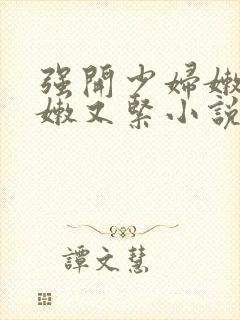 强開少婦嫩
嫩又緊小說
譚文慧